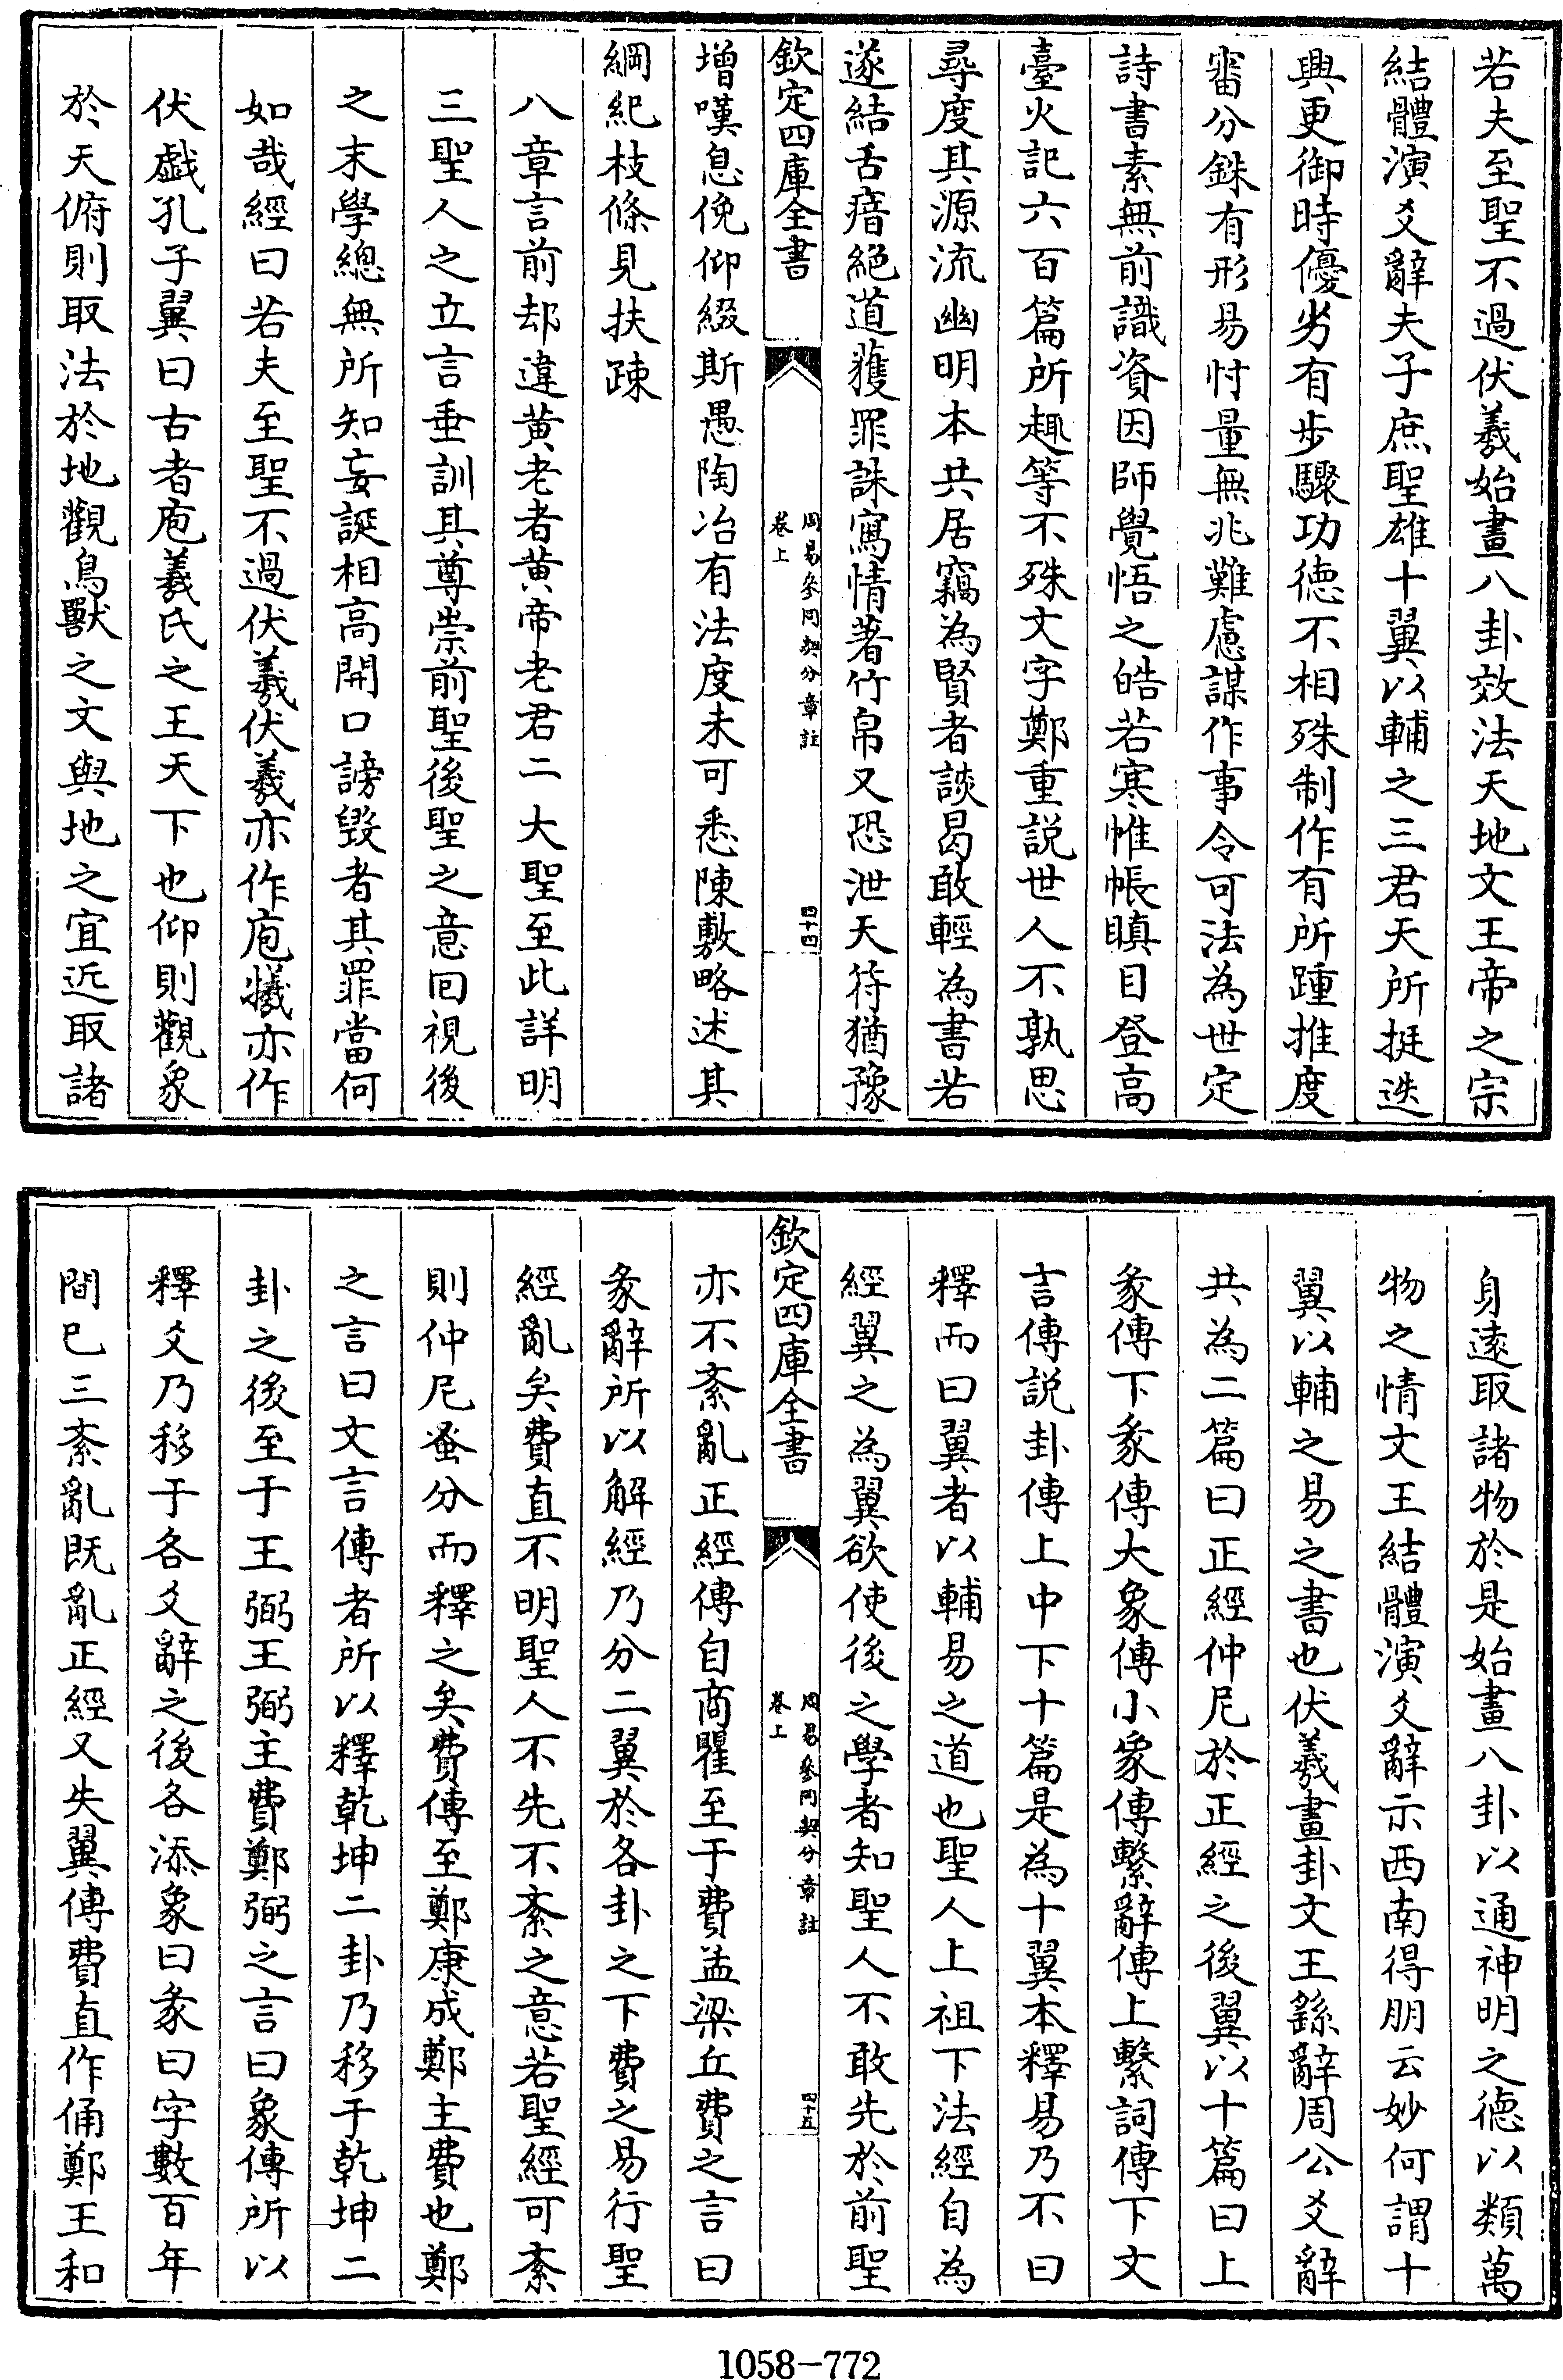 若夫至聖不過伏羲始畫八卦效法天地文王帝之宗
結體演爻辭夫子庶聖雄十翼以輔之三君天所挺迭
興更御時優劣有步驟功德不相殊制作有所踵推度
審分銖有形易忖量無兆難慮謀作事令可法為世定
詩書素無前識資因師覺悟之皓若褰帷帳瞋目登高
臺火記六百篇所趣等不殊文字鄭重説世人不孰思
尋度其源流幽明本共居竊為賢者談曷敢輕為書若
遂結舌瘖絕道獲罪誅寫情著竹帛又恐泄天符猶豫
欽定四庫全書
周易參同契分章註
卷上
四十四
增嘆息俛仰綴斯愚陶冶有法度未可悉陳敷略述其
綱紀枝條見扶疎
八章言前却違黄老者黄帝老君二大聖至此詳明
三聖人之立言垂訓其尊崇前聖後聖之意回視後
之末學總無所知妄誕相高開口謗毀者其罪當何
如哉經曰若夫至聖不過伏羲伏羲亦作庖犧亦作
伏戲孔子翼曰古者庖羲氏之王天下也仰則觀象
於天俯則取法於地觀鳥獸之文與地之宜近取諸
身遠取諸物於是始畫八卦以通神明之德以類萬
物之情文王結體演爻辭示西南得朋云妙何謂十
翼以輔之易之書也伏羲畫卦文王繇辭周公爻辭
共為二篇曰正經仲尼於正經之後翼以十篇曰上
彖傳下彖傳大象傳小象傳繫辭傳上繫詞傳下文
言傳説卦傳上中下十篇是為十翼本釋易乃不曰
釋而曰翼者以輔易之道也聖人上祖下法經自為
經翼之為翼欲使後之學者知聖人不敢先於前聖
欽定四庫全書
周易參同契分章註
卷上
四十五
亦不紊亂正經傳自商瞿至于費孟梁丘費之言曰
彖辭所以解經乃分二翼於各卦之下費之易行聖
經亂矣費直不明聖人不先不紊之意若聖經可紊
則仲尼蚤分而釋之矣費傳至鄭康成鄭主費也鄭
之言曰文言傳者所以釋乾坤二卦乃移于乾坤二
卦之後至于王弼王弼主費鄭弼之言曰象傳所以
釋爻乃移于各爻辭之後各添象曰彖曰字數百年
間已三紊亂既亂正經又失翼傳費直作俑鄭王和
1058-772